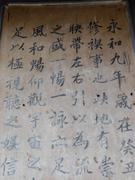 永和九年歲在癸丑
修禊事也此地有崇
映帶左右引以為流
之盛一觴一詠亦足
風和暢仰觀宇宙之
足以極視聽之娛信